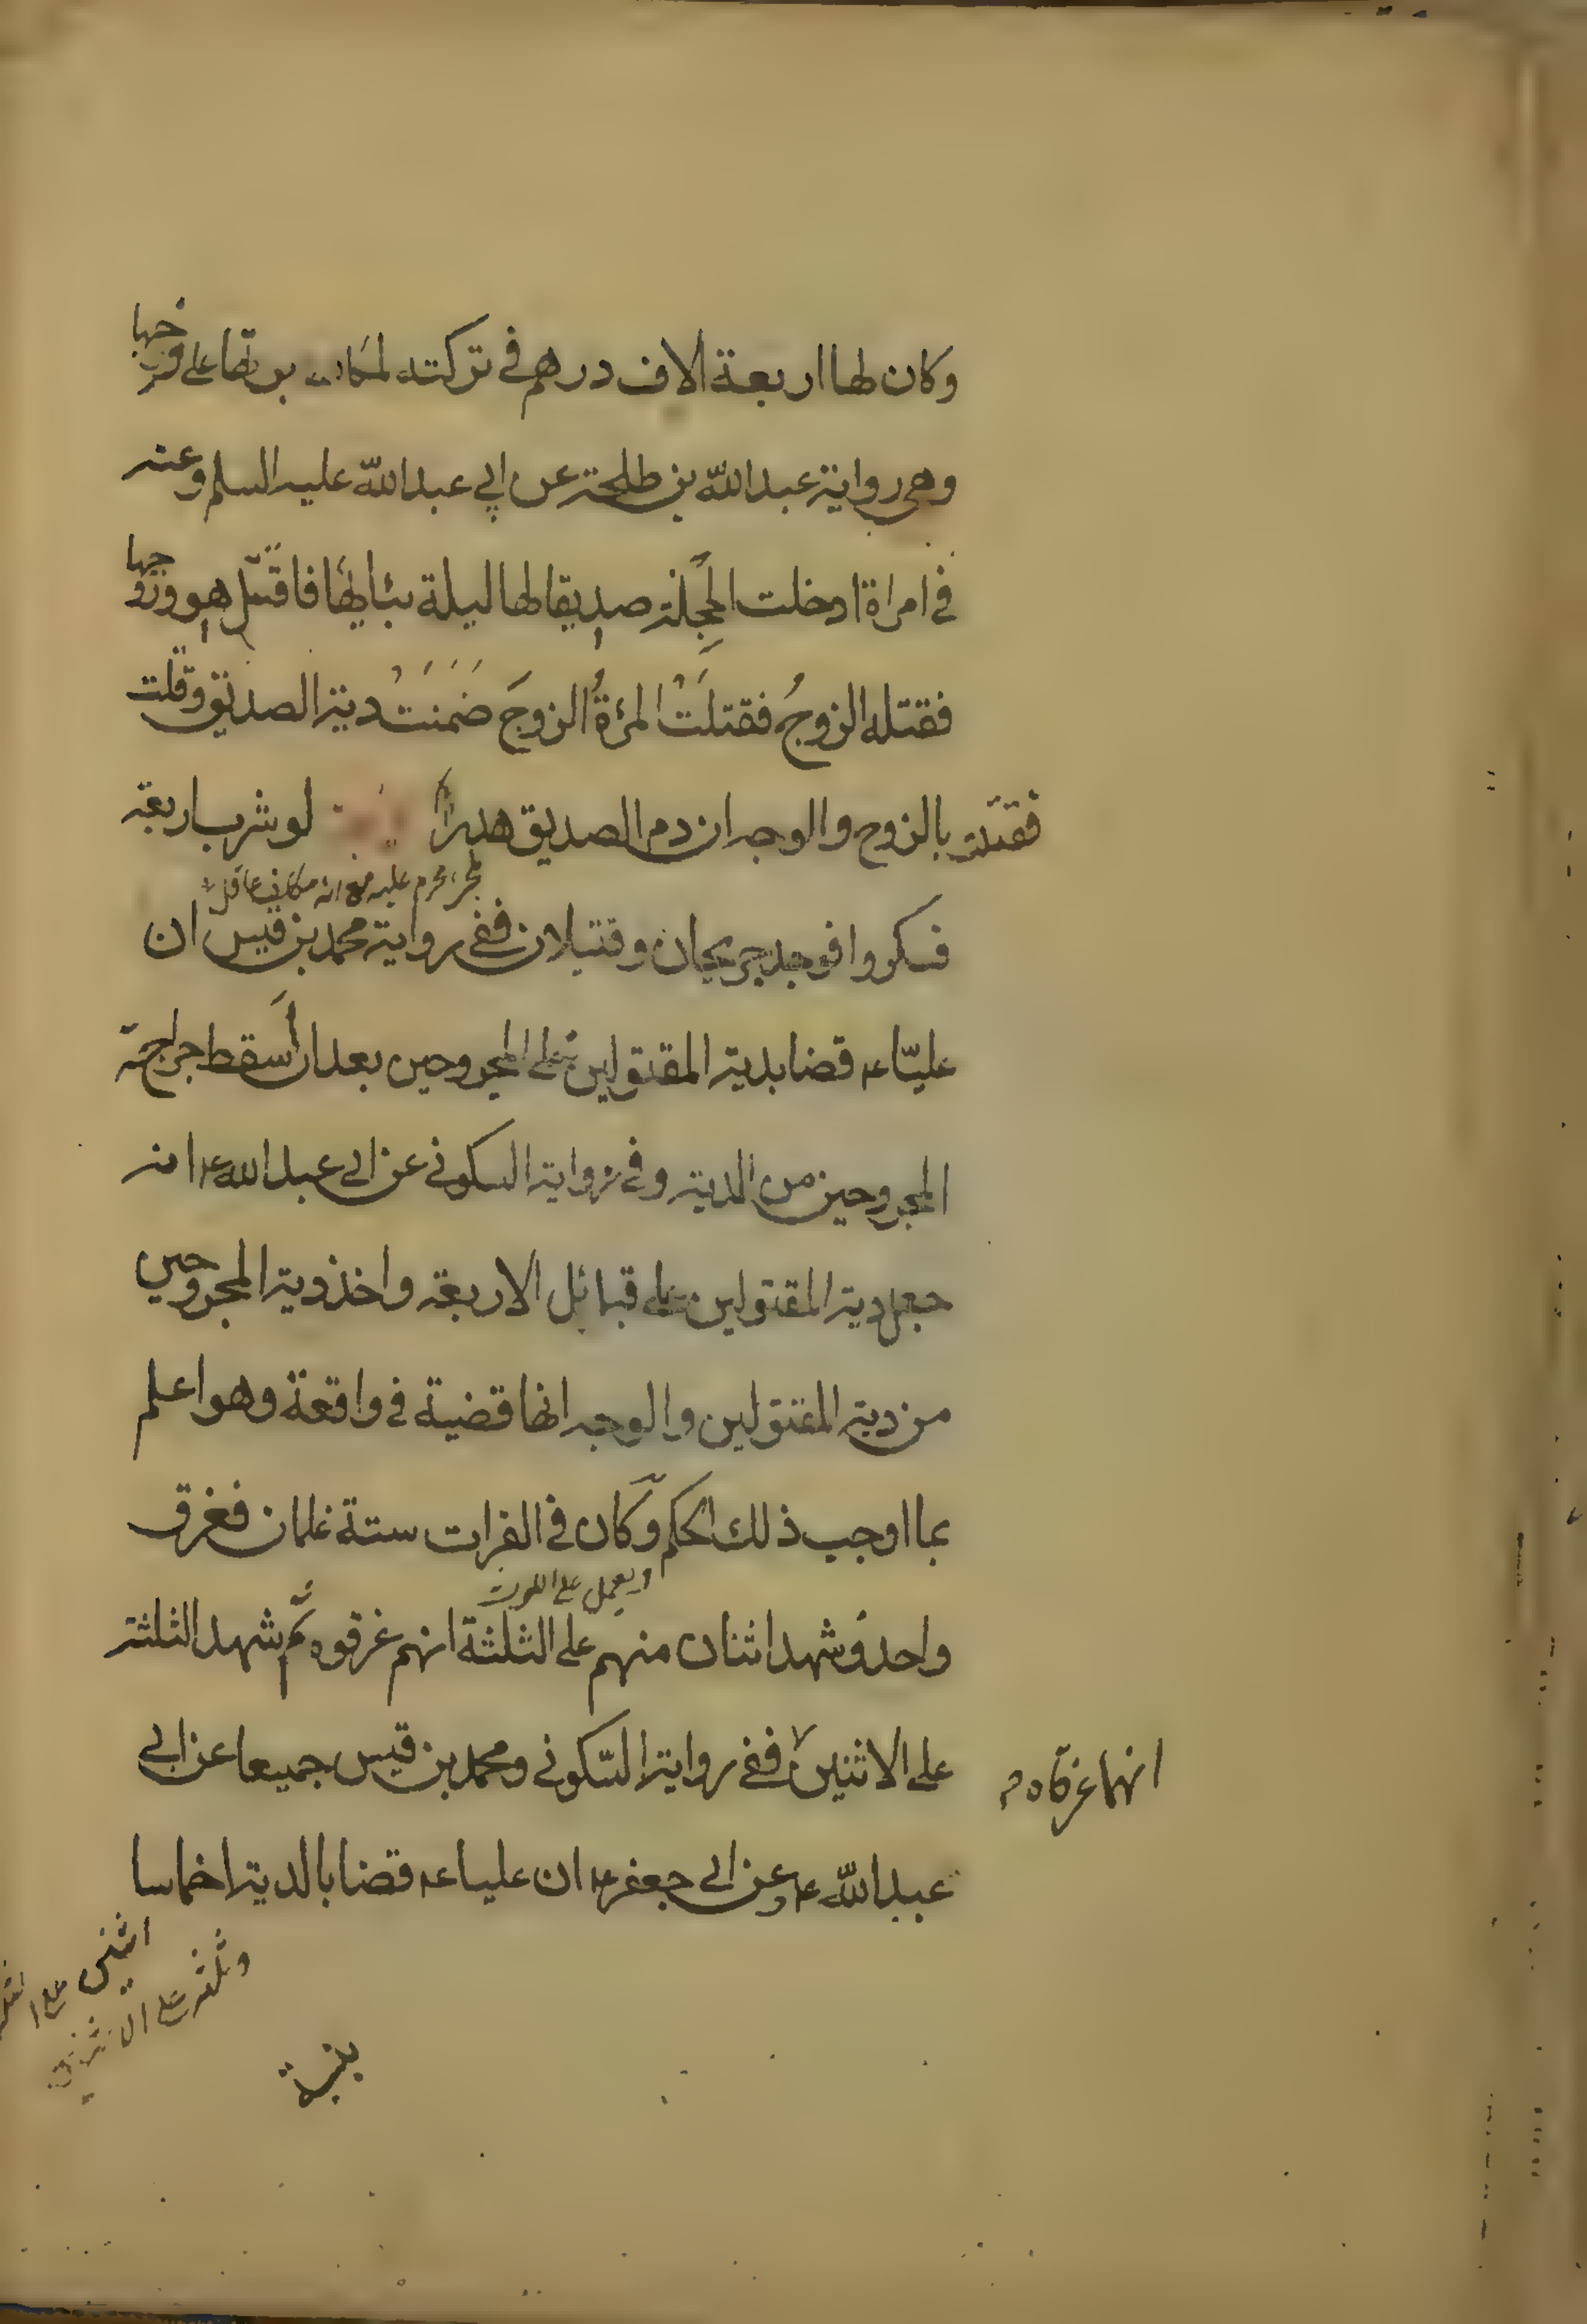 وكان لها اربعة الاف درهم في تركته لمكابرتها على فرجها
وهي رواية عبدالله بن طلحة عن ابي عبدالله عليه السلم وعنه
في امراة ادخلت الحجلة صديقا لها ليلة بنائها فاقتتل هو وزوجها
فقتله الزوجُ فقتلَتْ المرئةُ الزوجَ ضَمَنَتْ دية الصديق وقتلت
فقتلت بالزوج والوجه ان دم الصديق هدر لو شرب اربعة
فسكروا فوجد جريحان وقتيلان ففي رواية محمد بن قيس ان
عليّا ع قضا بدية المقتولين على المجروحين بعد ان أسقط جراحة
المجروحين من الدية وفي رواية السكوني عن ابي عبدالله ع انه
جعل دية المقتولين على قبائل الاربعة واخذ دية المجروحين
من دية المقتولين والوجه انها قضية في واقعة وهو اعلم
بما اوجب ذلك الحكم وكان في الفرات ستة غلمان فغرق
واحد وشهد اثنان منهم على الثلثة انهم غرقوه ثم شهد الثلثة
على الاثنين ففي رواية السّكوني ومحمد بن قيس جميعا عن ابي
انهما غرقاه
عبدالله ع وعن ابي جعفر ع ان عليا ع قضا بالدية اخماسا
وثلثة على الاثنين